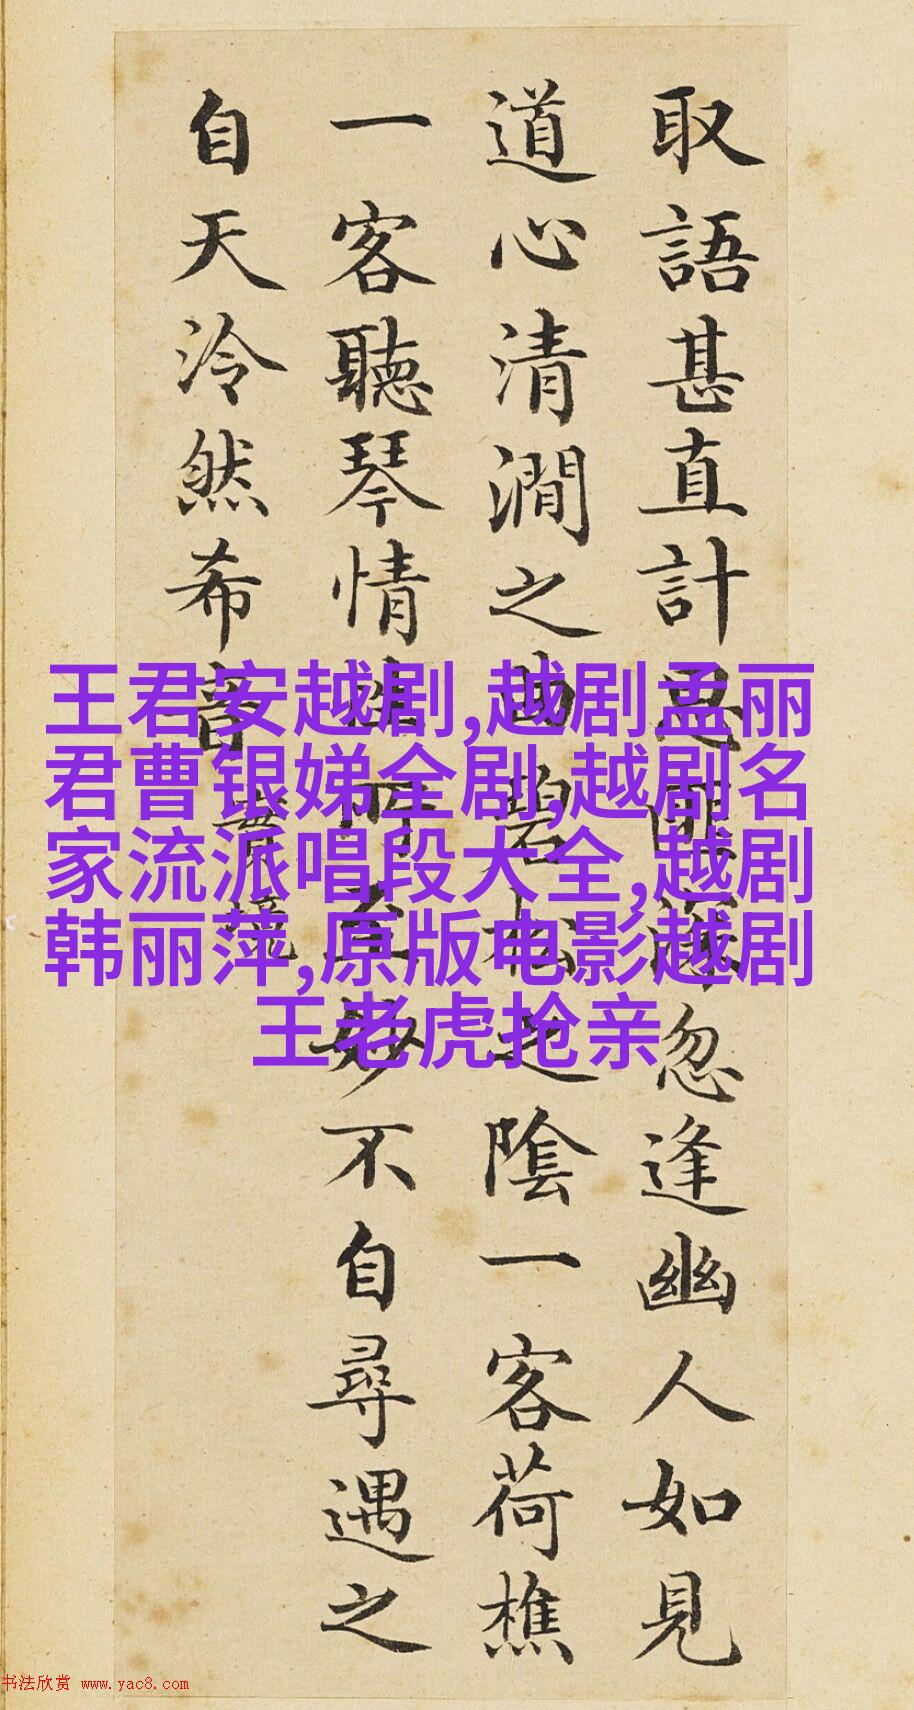 取語甚直計思匪深忽逢幽人如見
道心清澗之曲碧松之陰一客荷樵
一客聽琴情性所至妙不自尋遇之
自天泠然希音
實境
王君安越剧,越剧孟丽
君曹银娣全剧,越剧名
家流派唱段大全,越剧
韩丽萍,原版电影越剧
王老虎抢亲
书法欣赏 www.yac8.com